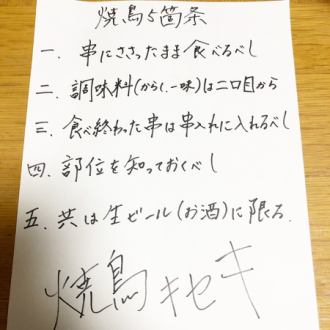 焼鳥5箇条
一. 串にささったまま食べるべし
二. 調味料(からし、一味)は二口目から
三. 食べ終わった串は串入れに入れるべし
四. 部位を知っておくべし
五. 共は生ビール(お酒)に限る.
焼鳥キセキ